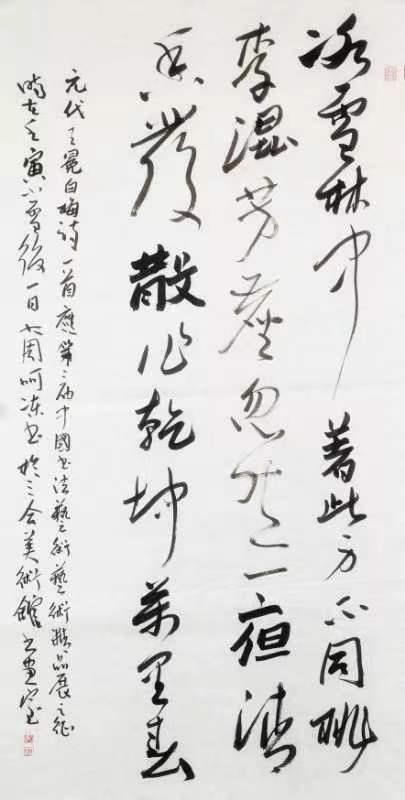 冰雪林中著此身不同桃
李混芳塵忽然一夜清
香發散作乾坤萬里春
元代王冕白梅詩一首應第三屆中國書法藝術藝術精品展之征
時在壬寅雪後一日周呵凍書於美術館畫室